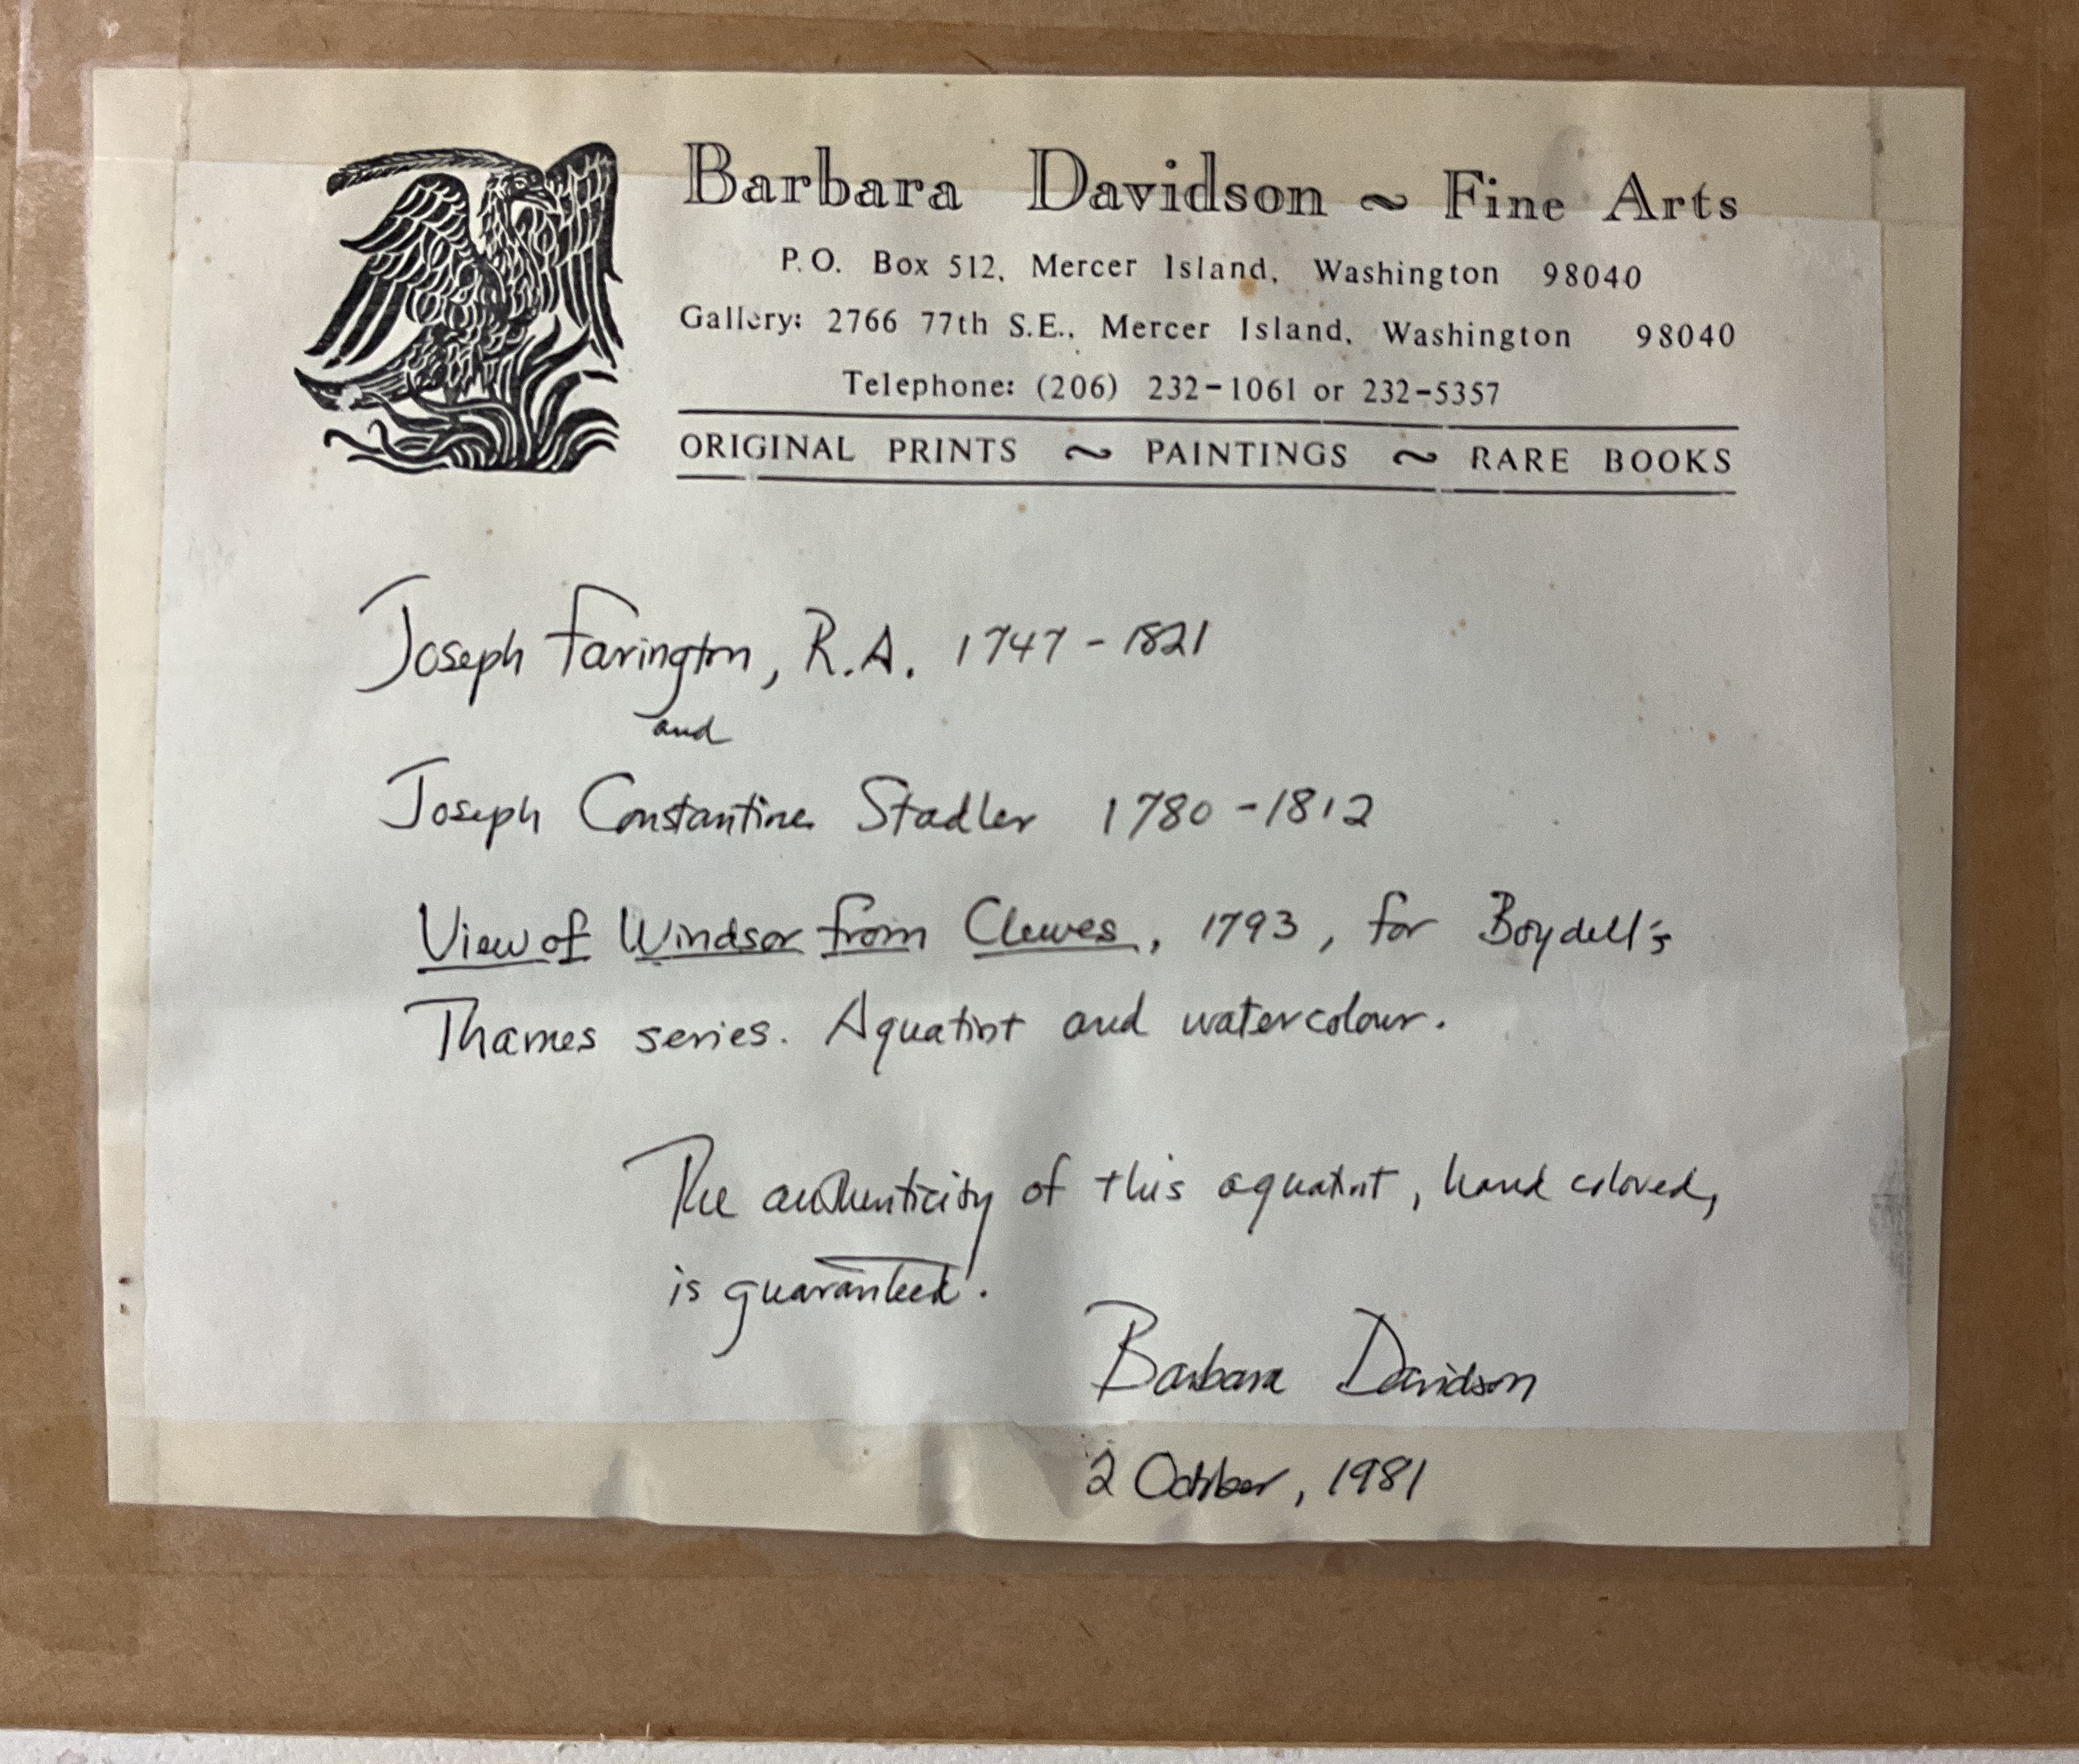 Barbara Davidson ~ Fine Arts
P.O. Box 512, Mercer Island, Washington 98040
Gallery: 2766 77th S.E., Mercer Island, Washington 98040
Telephone: (206) 232-1061 or 232-5357
ORIGINAL PRINTS ~ PAINTINGS ~ RARE BOOKS
Joseph Farington, R.A. 1747-1821
and
Joseph Constantine Stadler 1780-1812
View of Windsor from Clewes, 1793, for Boydell's
Thames series. Aquatint and watercolour.
The authenticity of this aquatint, hand colored,
is guaranteed.
Barbara Davidson
2 October, 1981